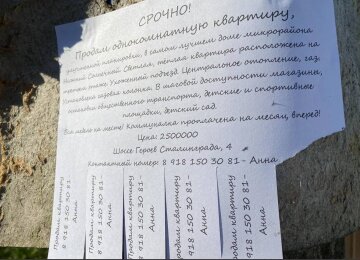 СРОЧНО!
Продам однокомнатную квартиру,
улучшенной планировки, в самом лучшем доме микрорайона
Южный. Солнечная, Светлая, тёплая квартира расположена на
третьем этаже. Ухоженный подъезд. Центральное отопление, газ.
Установлена газовая колонка. В шаговой доступности магазины,
остановки общественного транспорта, детские и спортивные
площадки, детский сад.
Вся мебель на месте! Коммуналка проплачена на месяц, вперед!
Цена: 2500000
Шоссе Героев Сталинграда, 4
Контактный номер: 8 918 150 30 81 - Анна
Продам квартиру
8 918 150 30 81
Анна
Продам квартиру
8 918 150 30 81-
Анна
Продам квартиру
8 918 150 30 81-
Анна
Продам квартиру
8 918 150 30 81-
Анна
Продам квартиру
8 918 150 30 81-
Анна